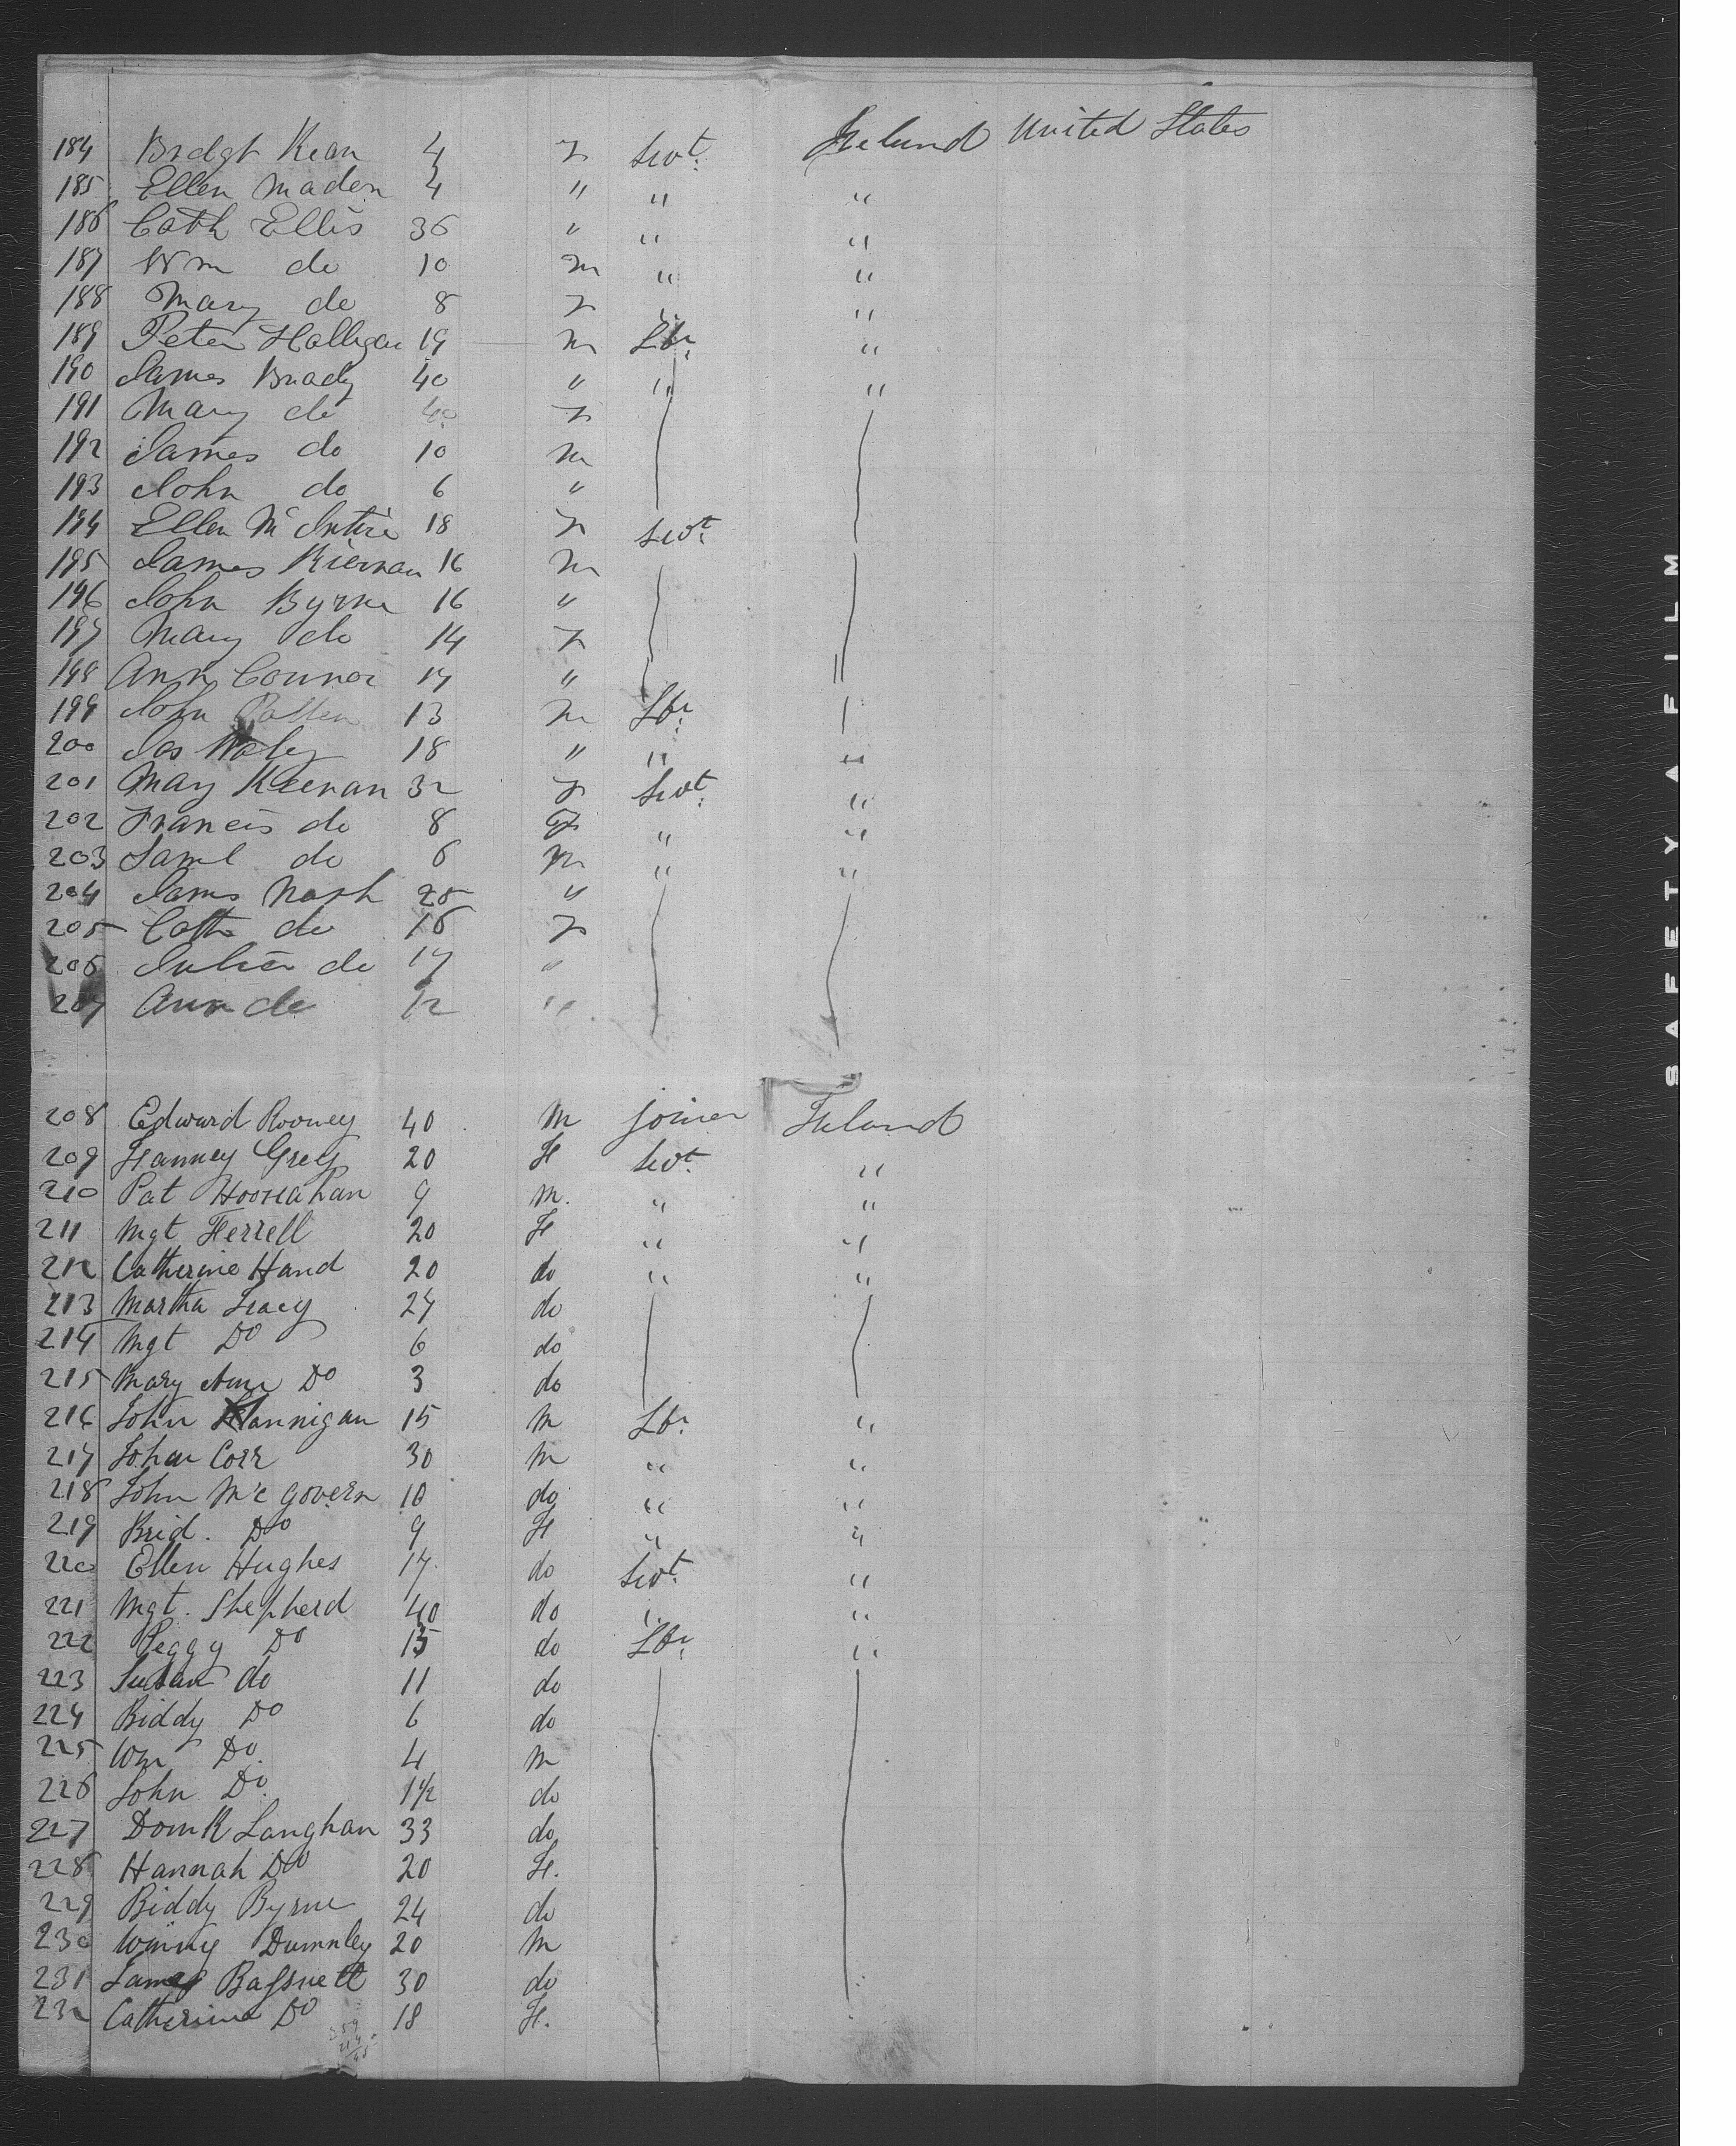 184 Bridgt Kean 4 F Servt. Ireland United States
185 Ellen Maden 4 " " "
186 Cath Ellis 36 " " "
187 Wm do 10 M " "
188 Mary do 8 F " "
189 Peter Halligan 19 M Lbr. "
190 James Brady 40 " " "
191 Mary do 40 F
192 James do 10 M
193 John do 6 "
194 Ellen McIntire 18 F Servt.
195 James Kiernan 16 M
196 John Byrne 16 "
197 Mary do 14 F
198 Ann Connor 17 " "
199 John 13 M Lbr.
200 Jas 18 " " "
201 Mary Keenan 32 F Servt. "
202 Francis do 8 F " "
203 Saml do 6 M " "
204 James Nash 25 "
205 Cath do 16 F
206 Julia do 17 "
207 Ann do 12 "
208 Edward Rooney 40 M Joiner Ireland
209 Fanney Grey 20 F Servt. "
210 Pat 9 M. " "
211 Mgt Ferrell 20 F " "
212 Catherine Hand 20 do " "
213 Martha Tracy 27 do
214 Mgt Do 6 do
215 Mary Ann Do 3 do
216 John Hannigan 15 M Lbr. "
217 John Corr 30 M " "
218 John McGovern 10 do " "
219 Brid. Do 9 F " "
220 Ellen Hughes 17 do Servt. "
221 Mgt. Shepherd 40 do " "
222 Peggy Do 15 do Lbr. "
223 Susan do 11 do
224 Biddy Do 6 do
225 Wm Do. 4 M
226 John Do. 1½ do
227 Domk Langhan 33 do
228 Hannah Do 20 F.
229 Biddy Byrne 24 do
230 Winny Dumnley 20 M
231 James Bassnett 30 do
232 Catherine Do 18 F.
SAFETY A FILM